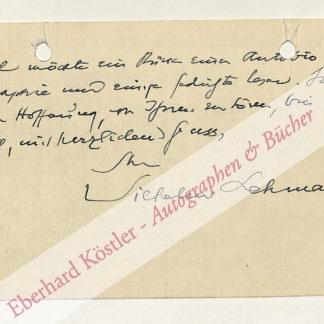 möchte ein Stück einer Autobio
graphie und einige Gedichte lesen.
Hoffnung, von Ihnen zu hören, bin
mit herzlichem Gruss,
Ihr
Wilhelm Lehma
Eberhard Köstler - Autographen & Bücher